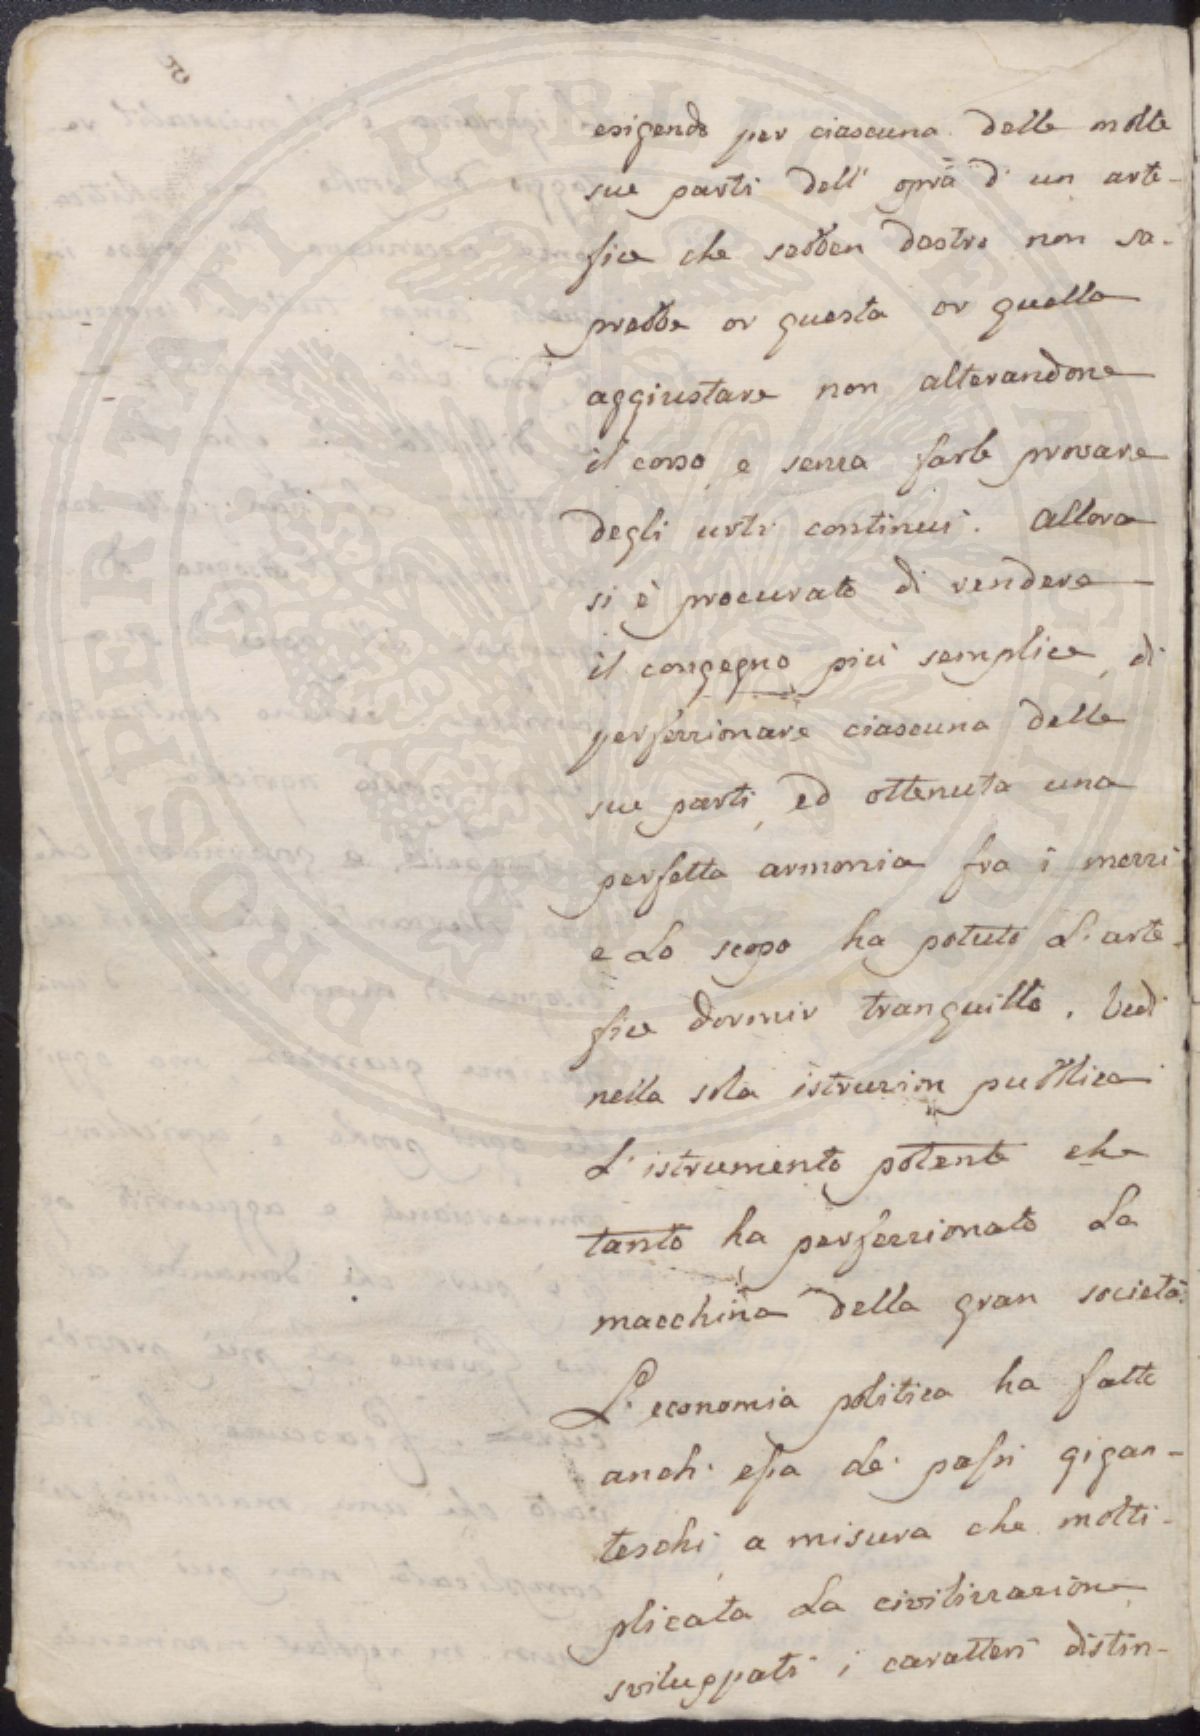 esigendo per ciascuna delle molte
sue parti dell' opra d' un arte-
fice che sebben destro non sa-
prebbe or questa or quella
aggiustare non alterandone
il corso e senza farle provare
degli urti continui. Allora
si è procurato di rendere
il congegno più semplice, di
perfezzionare ciascuna delle
sue parti, ed ottenuta una
perfetta armonia fra i mezzi
e Lo scopo ha potuto L' arte-
fice dormir tranquillo. Vedi
nella sola istruzion pubblica
L' istrumento potente che
tanto ha perfezzionato La
macchina della gran società.
L' economia politica ha fatto
anch' essa de' passi gigan-
teschi, a misura che molti-
plicata La civilizzazione
sviluppati i caratteri distin-
PROSPERITATI PUBLICAE AUGENDAE